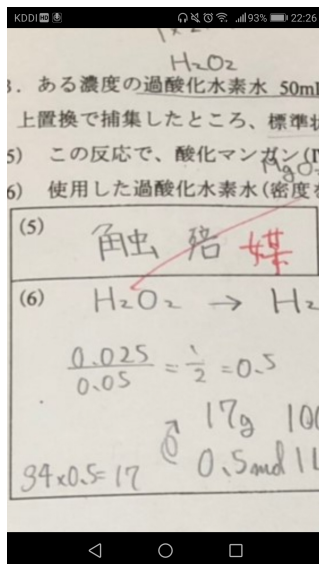 KDDI 93% 22:26
H₂O₂
3. ある濃度の過酸化水素水 50ml
上置換で捕集したところ、標準状
5) この反応で、酸化マンガン(I
6) 使用した過酸化水素水(密度を
(5) 触 倍 媒
(6) H₂O₂ → H₂
0.025/0.05 = 1/2 = 0.5
17g 100
34×0.5=17 0.5mol 1L